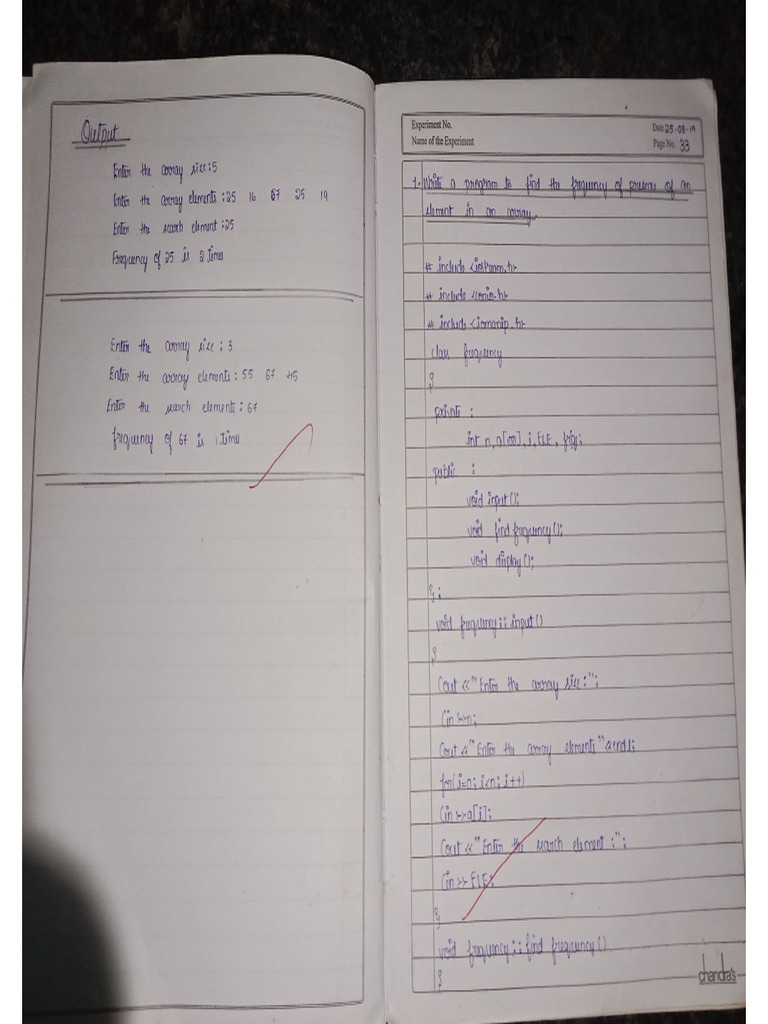 Output
Enter the array size:5
Enter the array elements:25 16 67 25 19
Enter the search element:25
Frequency of 25 is 2 times
Enter the array size : 3
Enter the array elements: 55 67 45
Enter the search elements: 67
frequency of 67 is 1 times
Experiment No.
Name of the Experiment
Date 25-08-19
Page No. 33
1. Write a program to find the frequency of presence of an
element in an array.
# include <iostream.h>
# include <conio.h>
# include <iomanip.h>
class frequency
{
private :
int n, a[100], i, ELE,
public :
void input();
void find frequency();
void display();
};
void frequency :: input()
{
Cout <<"Enter the array size:";
Cin >>n;
Cout <<"Enter the array elements"<<endl;
for(i=n; i<n; i++)
Cin >>a[i];
Cout <<"Enter the search element :";
Cin >> ELE;
}
void frequency :: find frequency()
{
chandra's